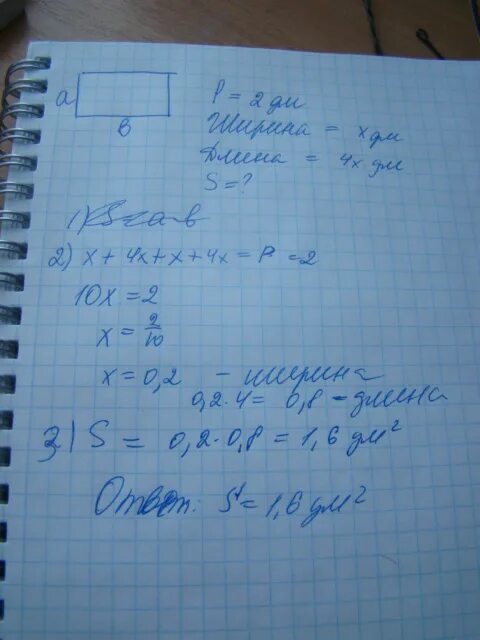 a
в
P = 2 дм
Ширина = x дм
Длина = 4x дм
S = ?
1) S = a·в
2) x + 4x + x + 4x = P = 2
10x = 2
x = 2/10
x = 0,2 - ширина
0,2·4 = 0,8 - длина
3) S = 0,2·0,8 = 1,6 дм²
Ответ: S = 1,6 дм²